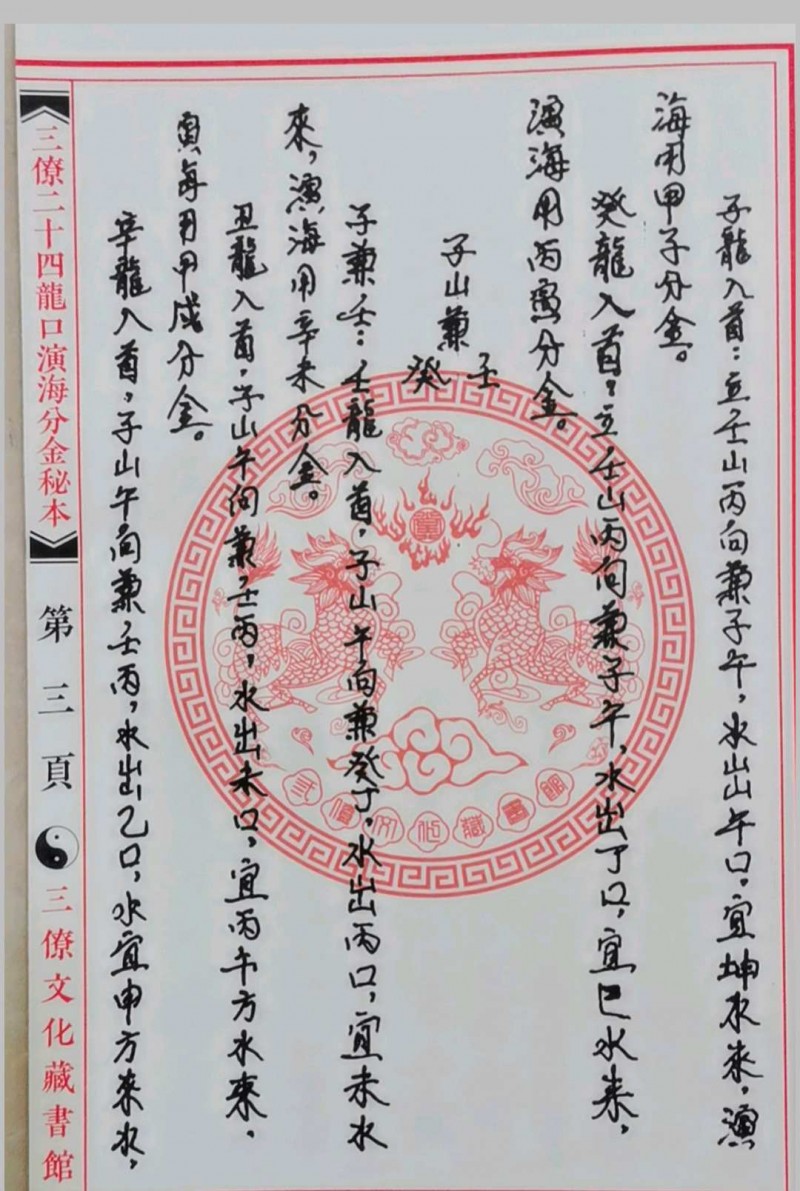 子龍入首：立壬山丙向兼子午，水出午口，宜坤水來，演
海用甲子分金。
癸龍入首：立壬山丙向兼子午，水出丁口，宜巳水來，
演海用丙寅分金。
子山兼壬癸
子兼壬：壬龍入首，子山午向兼癸丁，水出丙口，宜未水
來，演海用辛未分金。
丑龍入首，子山午向兼壬丙，水出未口，宜丙午方水來，
演海用甲戌分金。
辛龍入首，子山午向兼壬丙，水出乙口，水宜申方來水，
三僚二十四龍口演海分金秘本
第三頁
三僚文化藏書館
三僚文化藏書館